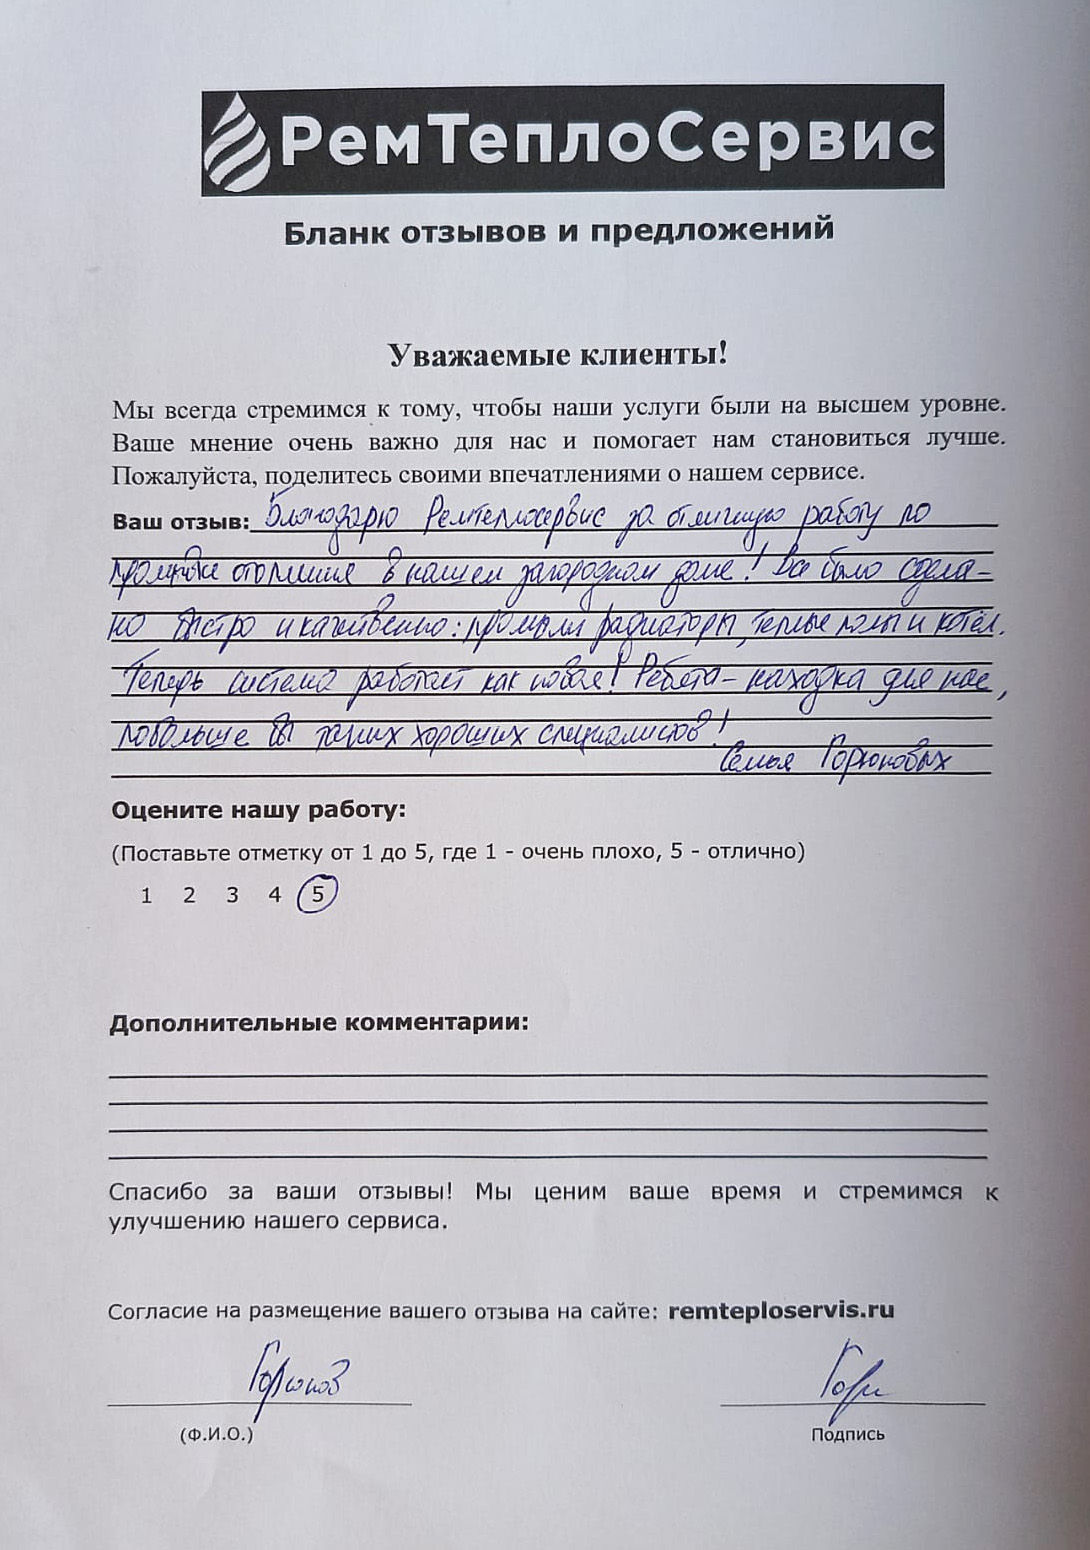 РемТеплоСервис
Бланк отзывов и предложений
Уважаемые клиенты!
Мы всегда стремимся к тому, чтобы наши услуги были на высшем уровне.
Ваше мнение очень важно для нас и помогает нам становиться лучше.
Пожалуйста, поделитесь своими впечатлениями о нашем сервисе.
Ваш отзыв: Благодарю Ремтеплосервис за отличную работу по
промывке отопления в нашем загородном доме! Все было сдела-
но быстро и качественно: промыли радиаторы, теплые полы и котел.
Теперь система работает как новая! Ребята - находка для нас,
побольше бы таких хороших специалистов!
Семья Горюновых
Оцените нашу работу:
(Поставьте отметку от 1 до 5, где 1 - очень плохо, 5 - отлично)
1 2 3 4 5
Дополнительные комментарии:
Спасибо за ваши отзывы! Мы ценим ваше время и стремимся к
улучшению нашего сервиса.
Согласие на размещение вашего отзыва на сайте: remteploservis.ru
Горюнов
(Ф.И.О.) Подпись